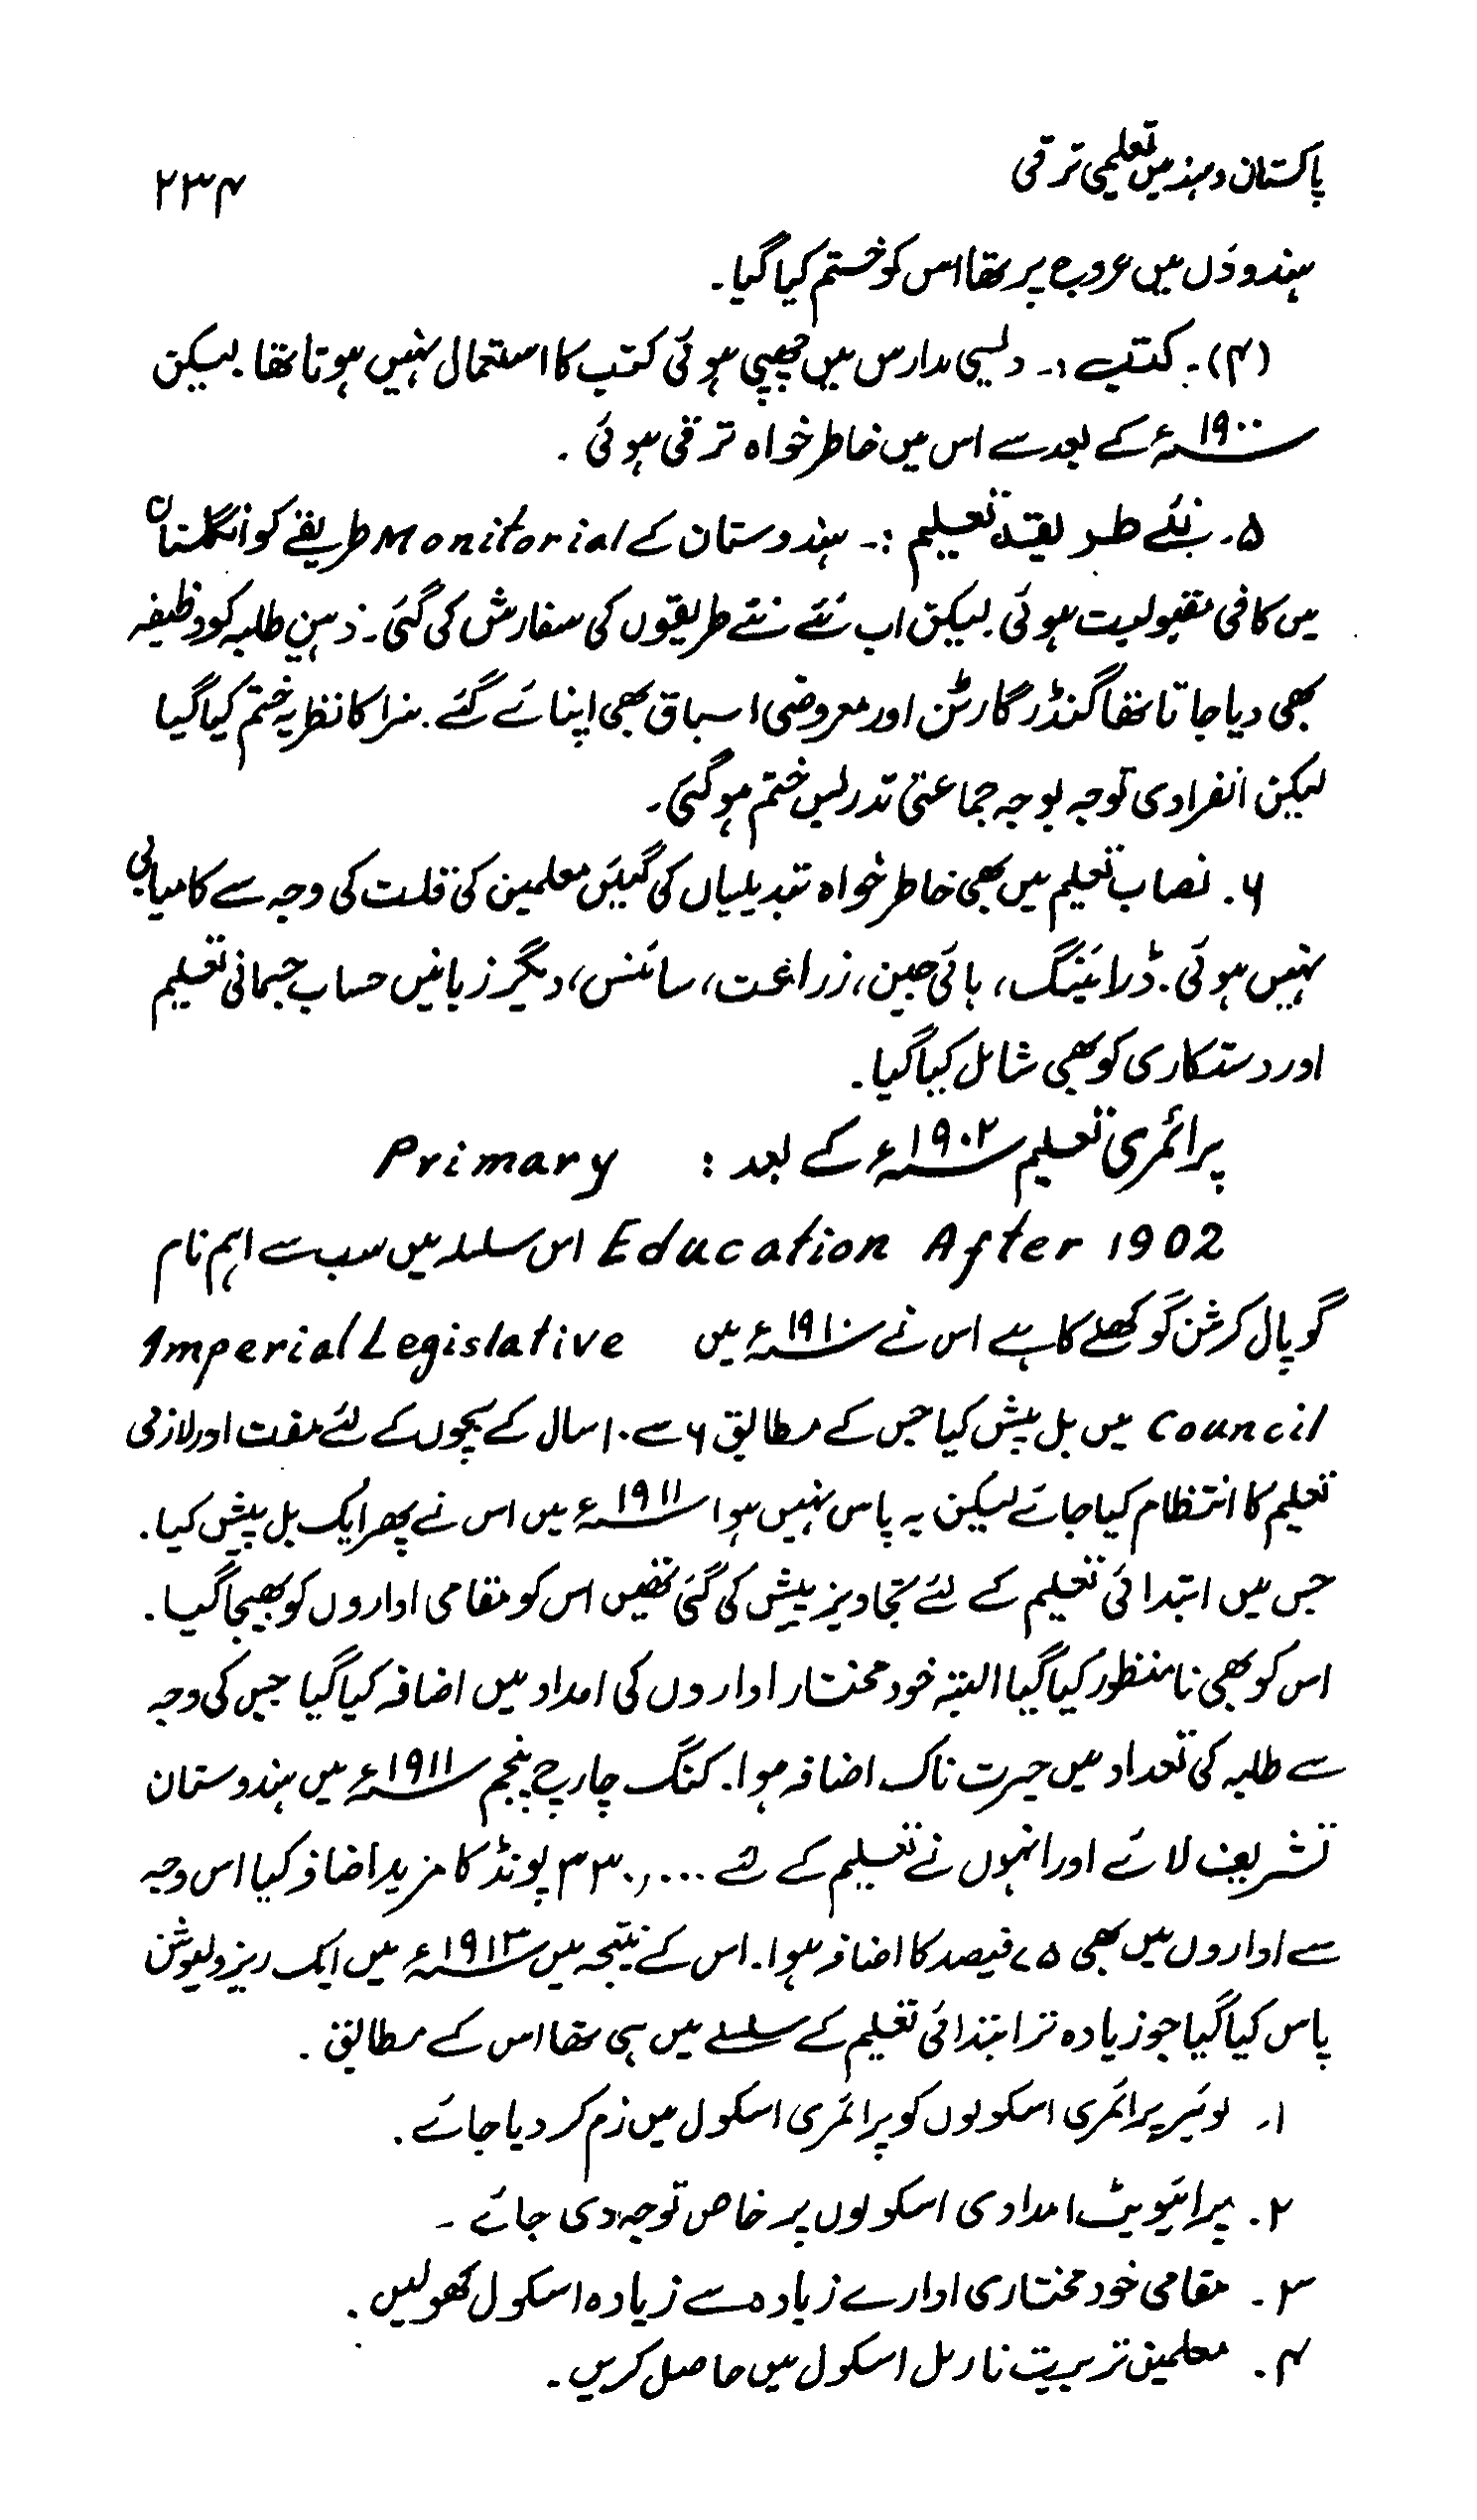 پاکستان و ہند میں تعلیمی ترقی ۲۳۴
ہندوؤں میں عروج پر تھا اس کو ختم کیا گیا۔
(۴)۔ کتب :۔ دلیسی مدارس میں چھپی ہوئی کتب کا استعمال نہیں ہوتا تھا۔ لیکن
۱۹۰۰ء کے بعد سے اس میں خاطر خواہ ترقی ہوئی۔
۵۔ نئے طریقہ تعلیم :۔ ہندوستان کے Monitorial طریقے کو انگلستان
میں کافی مقبولیت ہوئی۔ لیکن اب نئے نئے طریقوں کی سفارش کی گئی۔ ذہین طلبہ کو وظیفہ
بھی دیا جاتا تھا گنڈر گارٹن اور معروضی اسباق بھی اپنائے گئے۔ سزا کا نظریہ ختم کیا گیا
لیکن انفرادی توجہ بوجہ جماعتی تدریس ختم ہو گئی۔
۶۔ نصاب تعلیم میں بھی خاطر خواہ تبدیلیاں کی گئیں معلمین کی قلت کی وجہ سے کامیابی
نہیں ہوئی۔ ڈرائینگ، ہائی جین، زراعت، سائنس، دیگر زبانیں حساب جسمانی تعلیم
اور دستکاری کو بھی شامل کیا گیا۔
پرائمری تعلیم ۱۹۰۲ء کے بعد : Primary
Education After 1902 اس سلسلہ میں سب سے اہم نام
گوپال کرشن گوکھلے کا ہے اس نے ۱۹۱۰ء میں Imperial Legislative
Council میں بل پیش کیا جس کے مطابق ۶ سے ۱۰ سال کے بچوں کے لئے مفت اور لازمی
تعلیم کا انتظام کیا جائے لیکن یہ پاس نہیں ہوا ۱۹۱۱ء میں اس نے پھر ایک بل پیش کیا۔
جس میں ابتدائی تعلیم کے لئے تجاویز پیش کی گئی تھیں اس کو مقامی اداروں کو بھیجا گیا۔
اس کو بھی نامنظور کیا گیا البتہ خود مختار اداروں کی امداد میں اضافہ کیا گیا جس کی وجہ
سے طلبہ کی تعداد میں حیرت ناک اضافہ ہوا۔ کنگ جارج پنجم ۱۹۱۱ء میں ہندوستان
تشریف لائے اور انہوں نے تعلیم کے لئے ۳۳۰,۰۰۰ پونڈ کا مزید اضافہ کیا اس وجہ
سے اداروں میں بھی ۷۵ فیصد کا اضافہ ہوا۔ اس کے نتیجہ میں ۱۹۱۳ء میں ایک ریزولیوشن
پاس کیا گیا جو زیادہ تر ابتدائی تعلیم کے سلسلے میں ہی تھا اس کے مطابق۔
۱۔ لوئیر پرائمری اسکولوں کو پرائمری اسکول میں زم کر دیا جائے۔
۲۔ پرائیویٹ امدادی اسکولوں پر خاص توجہ دی جائے۔
۳۔ مقامی خود مختاری ادارے زیادہ سے زیادہ اسکول کھولیں۔
۴۔ معلمین تربیت نارمل اسکول میں حاصل کریں۔